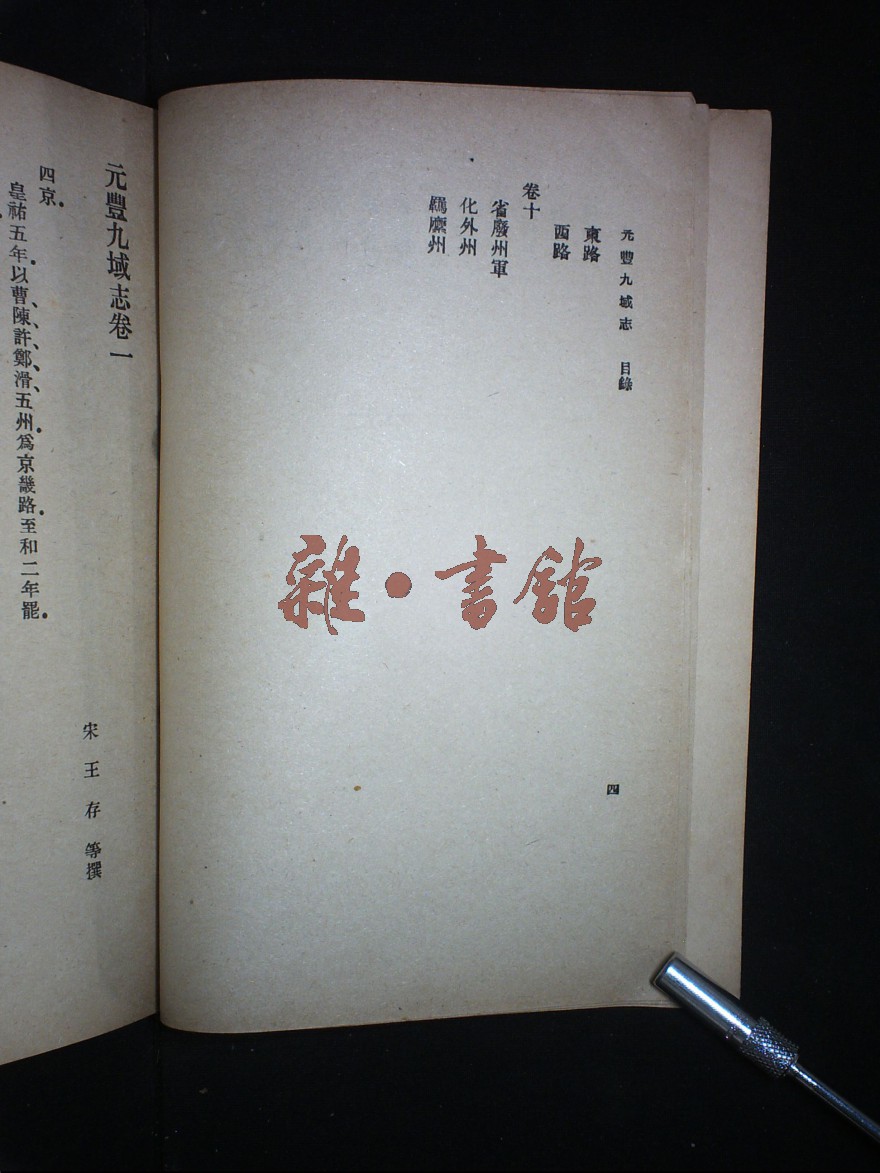 元豐九域志 目錄
東路
西路
卷十
省廢州軍
化外州
羈縻州
四
雜・書館
元豐九域志卷一
宋王存等撰
四京。
皇祐五年。以曹、陳、許、鄭、滑、五州。爲京畿路。至和二年罷。